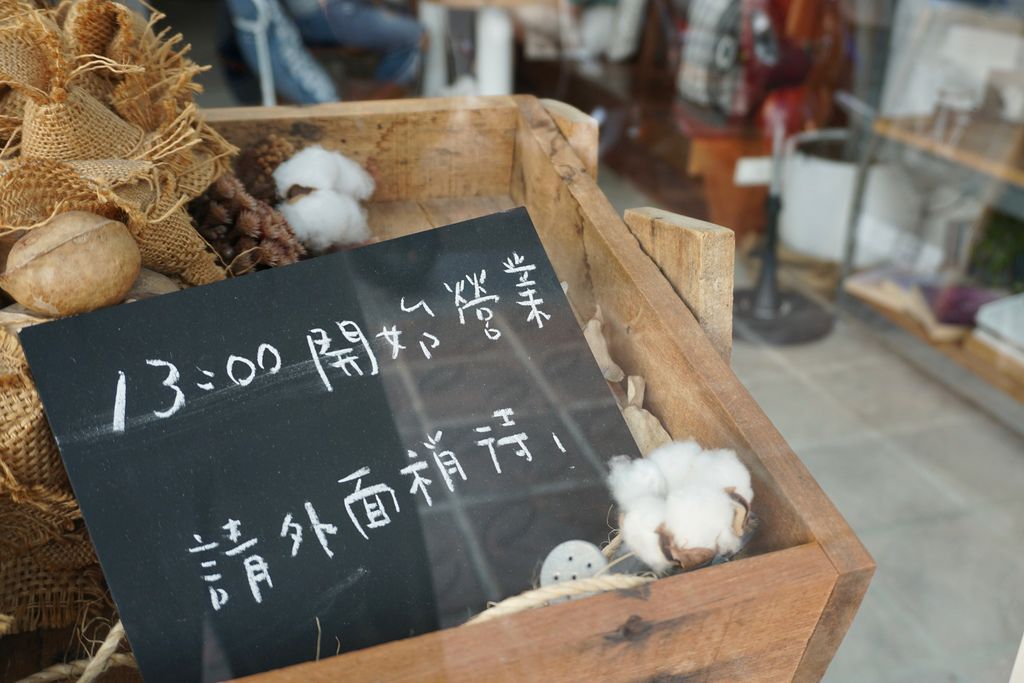 13:00 開始營業
請外面稍待,